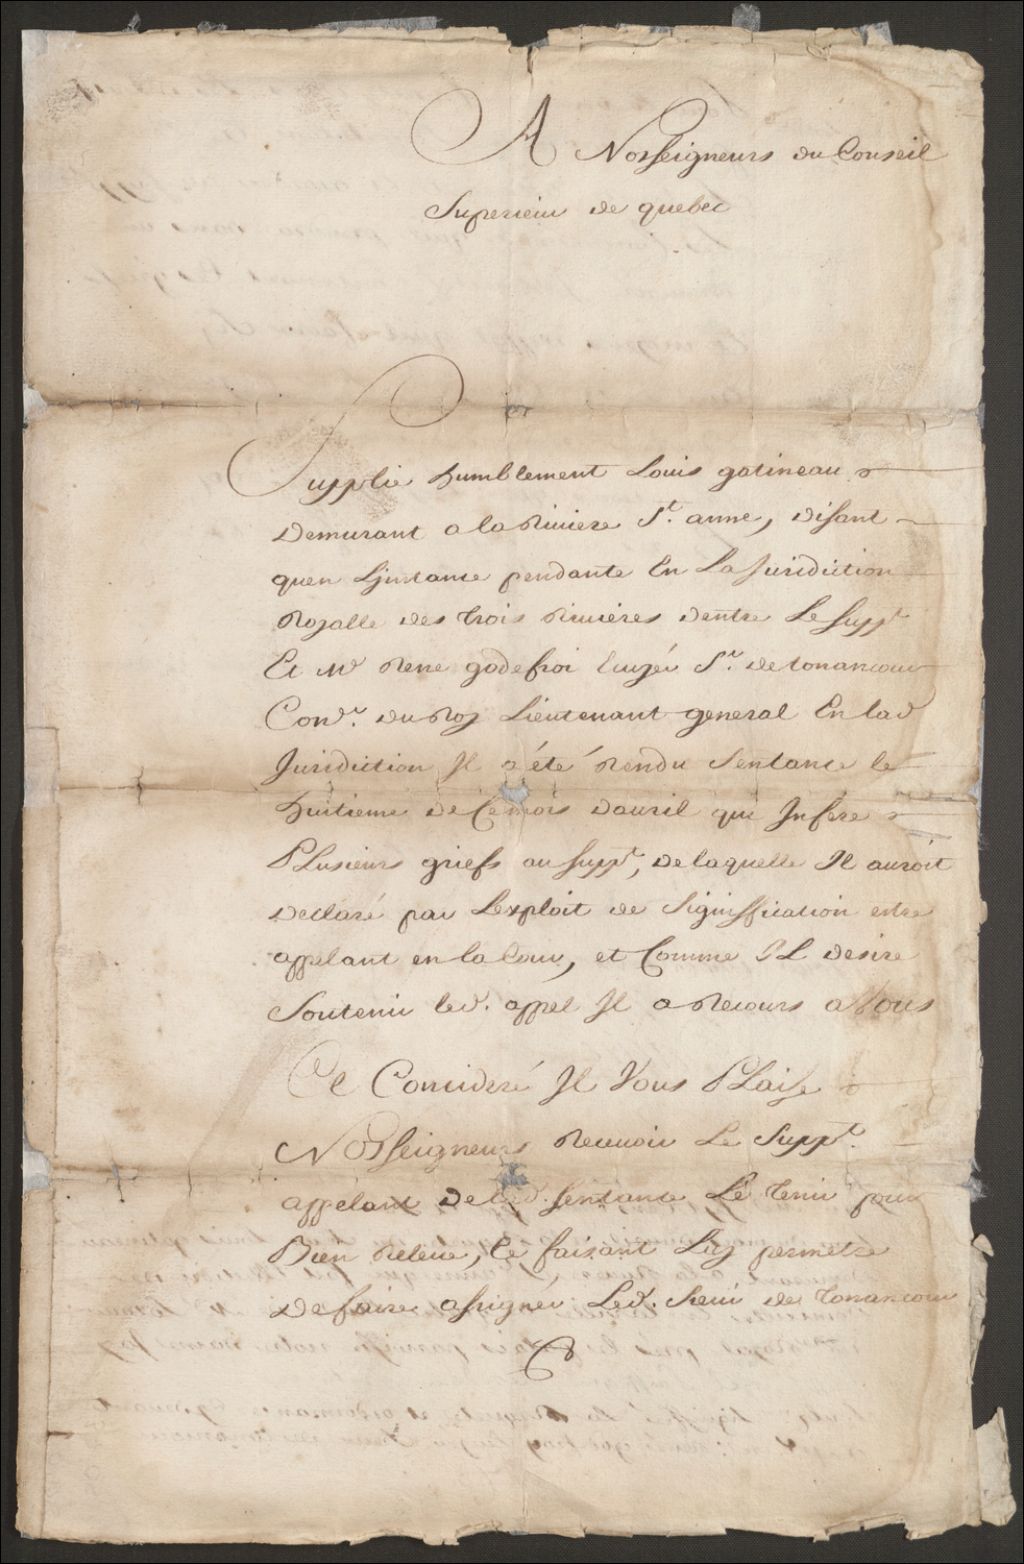 A Nosseigneurs du Conseil
Superieur de quebec
Supplie humblement Louis gatineau
Demurant a la Riviere St. anne, disant
quen Linstance pendante En La Juridiction
Rojalle des trois Rivieres dentre Le Suppt
Et Mr Rene godefroi Ecuyér Sr. de tonancour
Coner. du Roy Lieutenant general En lad
Juridiction Il a été Rendu Sentance le
huitieme de Ce mois davril qui Infere
PLusieurs griefs au Suppt, de laquelle Il auroit
Declaré par Lexploit de Signiffication estre
appelant en la Cour, et Comme IL desire
Soutenir led. appel Il a Recours a Vous
Ce Consideré Il Vous PLaise
Nosseigneurs Recevoir Le Suppt.
appélant De lad. Sentance Le tenir pour
Bien Releve, Ce faisant Luy permetre
De faire assigner Led. Sieur de tonancour